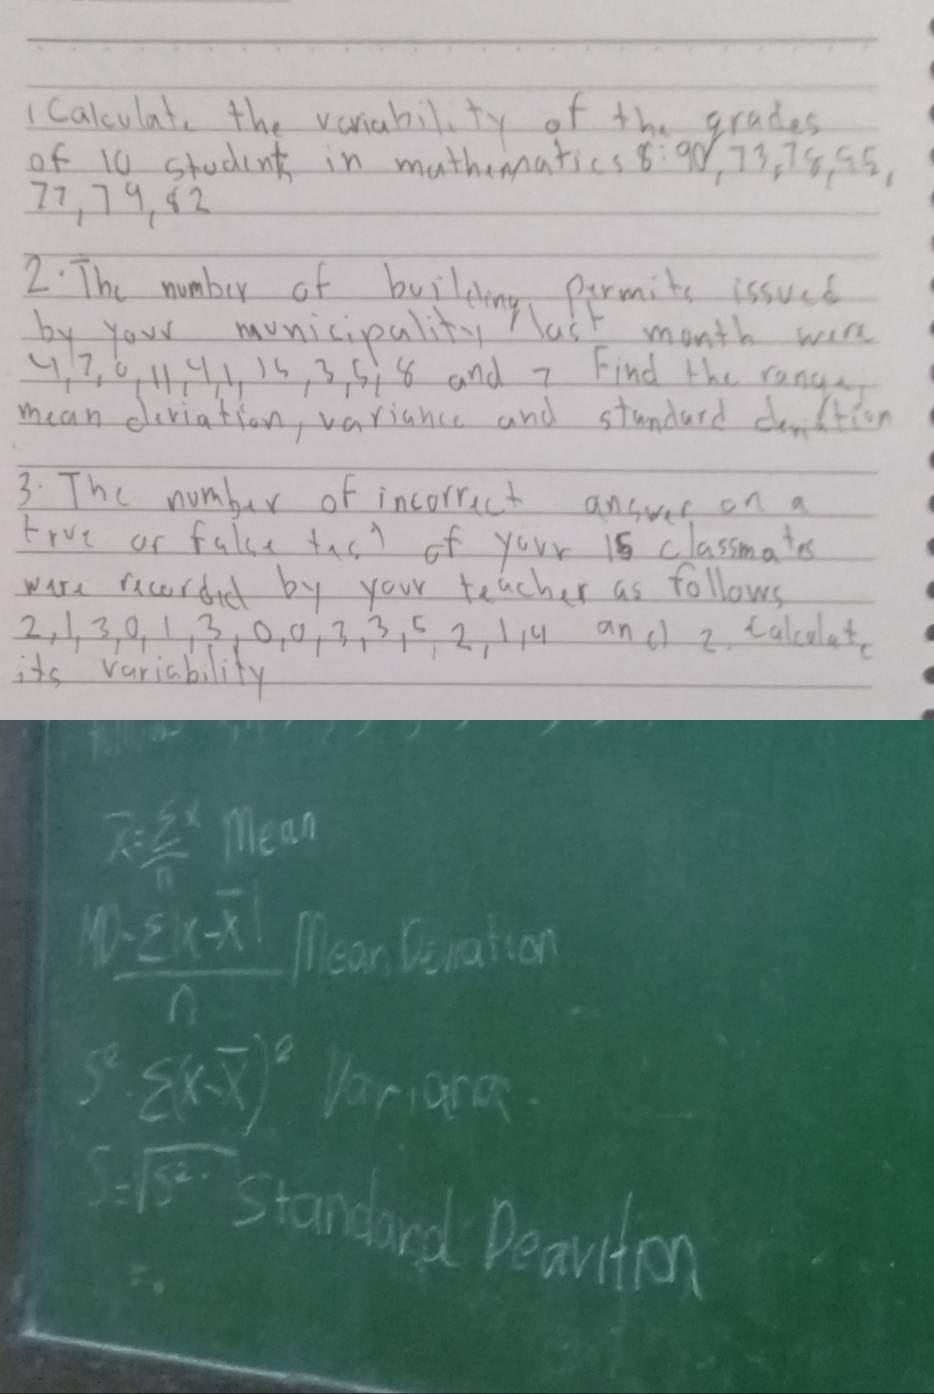 1 Calculate the variability of the grades
of 10 students in mathematics 8: 90, 73, 78, 95,
77, 79, 82
2. The number of building permits issued
by your municipality last month were
4, 7, 0, 11, 4, 1, 15, 3, 5, 8 and 7 Find the range,
mean deviation, variance and standard
3. The number of incorrect answer on a
true or false test of your 15 classmates
were recorded by your teacher as follows
2, 1, 3, 0, 1, 3, 0, 0, 3, 3, 5, 2, 1, 4 and 2. Calculate
its variability
x̄ = Σx/n Mean
MD = Σ|x-x̄|/n Mean Deviation
S² = Σ(x-x̄)² Variance
S = √S² Standard Deavition